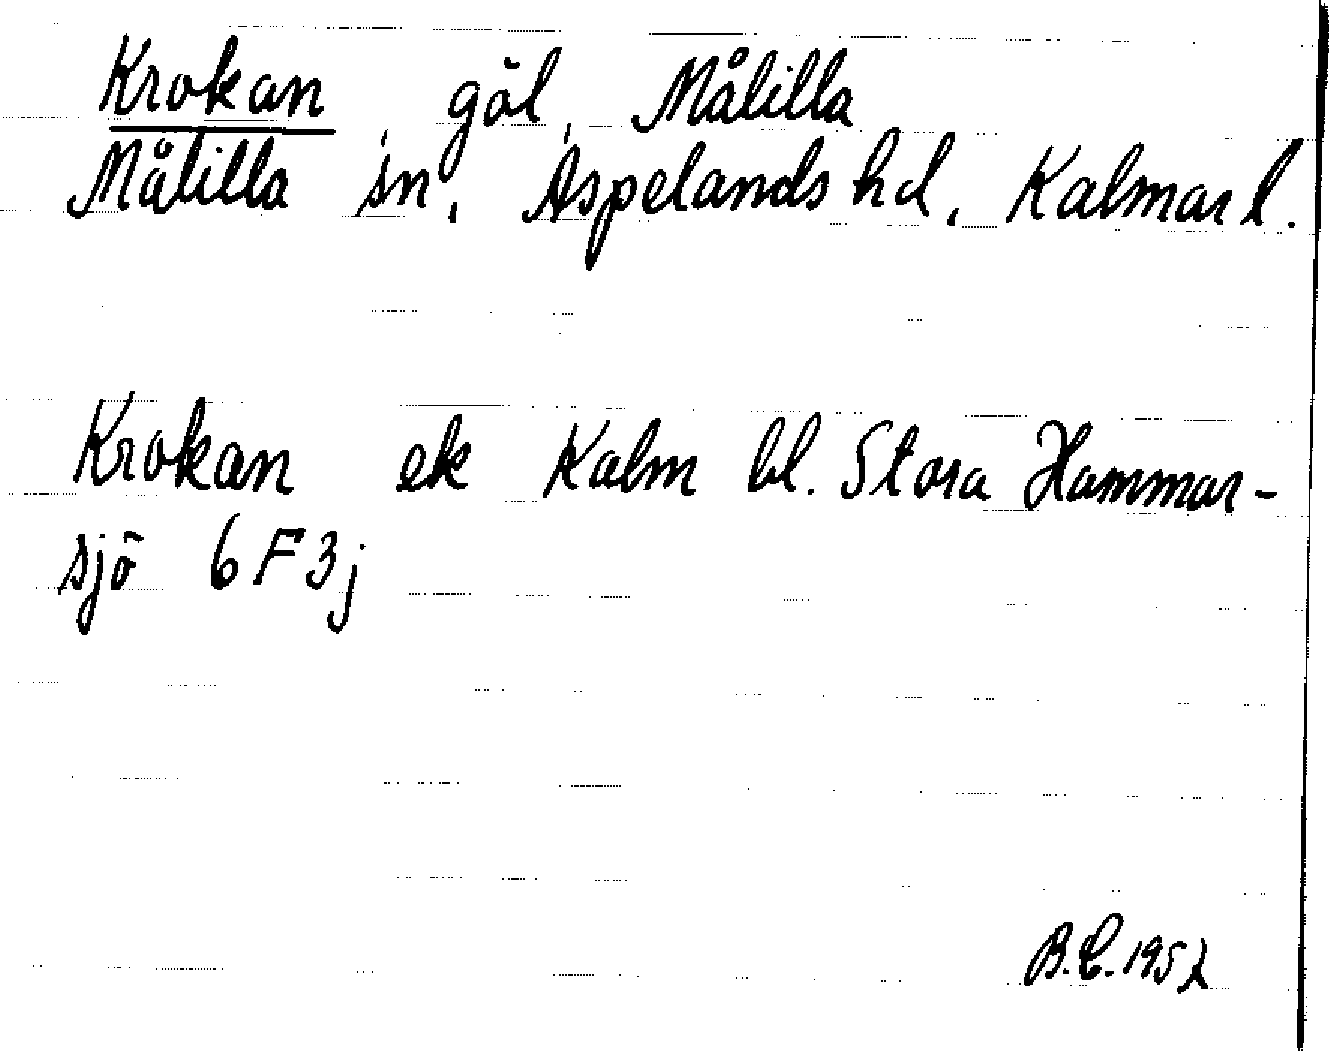 Krokan, göl, Målilla
Målilla sn, Aspelands hd, Kalmar l.
Krokan ek Kalm bl. Stora Hammar-
sjö 6F3j
B.C. 1952